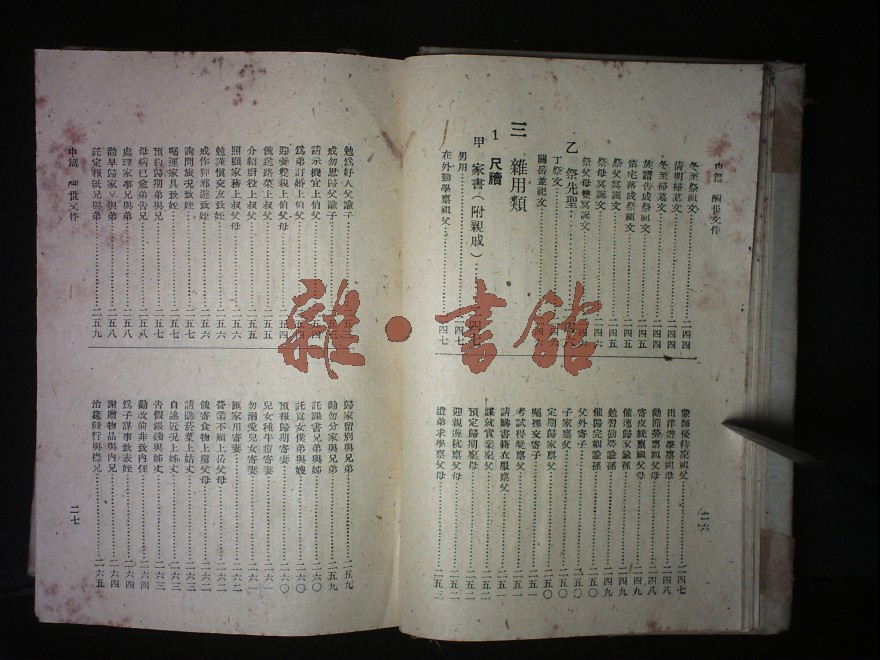 中篇 酬世文件
冬至祭祖文……二四四
清明掃墓文……二四四
冬至掃墓文……二四四
葺譜告成祭祖文……二四四
第宅落成祭祖文……二四五
祭父冥誕文……二四五
祭母冥誕文……二四六
祭父母雙冥誕文
乙 祭先聖
丁祭文
關岳並祀文
三 雜用類
1 尺牘
甲 家書(附親戚)
男用
在外勤學稟祖父
蒙師優待稟祖父……二四七
出洋遊學稟祖母……二四八
勸節勞稟祖父母……二四八
寄皮統稟祖父母……二四九
催池歸家諭孫……二四九
勉習勤勞諭孫……二四九
催歸完親諭孫……二五〇
父外寄子……二五〇
子家稟父……二五〇
定期歸家稟父……二五〇
囑擇交寄子……二五一
考試得獎稟父……二五一
請購書籍衣服稟父……二五一
謀就實業稟父……二五二
預定歸期稟母……二五二
迎親遊杭稟父母……二五二
遣弟求學稟父母……二五三
二六
勉爲好人父諭子
戒勿思歸父諭子
請示機宜上伯父
爲弟訂婚上伯父
迎養雙親上伯父母
餽送路菜上叔父……二五五
介紹廚役上叔父……二五五
照顧家務上叔父母……二五六
勉謹慎交友致姪……二五六
戒作狎邪遊致姪……二五六
詢問旅況致姪……二五七
囑運家具致姪……二五七
預約歸期弟與兄……二五七
母病已愈弟告兄……二五八
處理家事兄與弟……二五八
勸早歸家兄與弟……二五八
託定報紙兄與弟……二五九
中篇 酬世文件
歸家留別與兄弟……二五九
勸勿分家與兄弟……二五九
託謀書兄弟與姊……二六〇
託寬女僕弟與嫂……二六〇
預報歸期寄妻……二六〇
兒女種牛痘寄妻……二六一
勿溺愛兒女寄妻……二六一
匯家用寄妻……二六二
營業不順上岳父母……二六二
餽寄食物上舅父母……二六二
請購菸葉上姑丈……二六三
自述近況上姊丈……二六三
告假銀錢與姊丈……二六三
勸改前非致內侄……二六四
爲子謀事致表姪……二六四
謝贈物品與內兄……二六四
治筵餞行與襟兄……二六五
二七
雜·書館